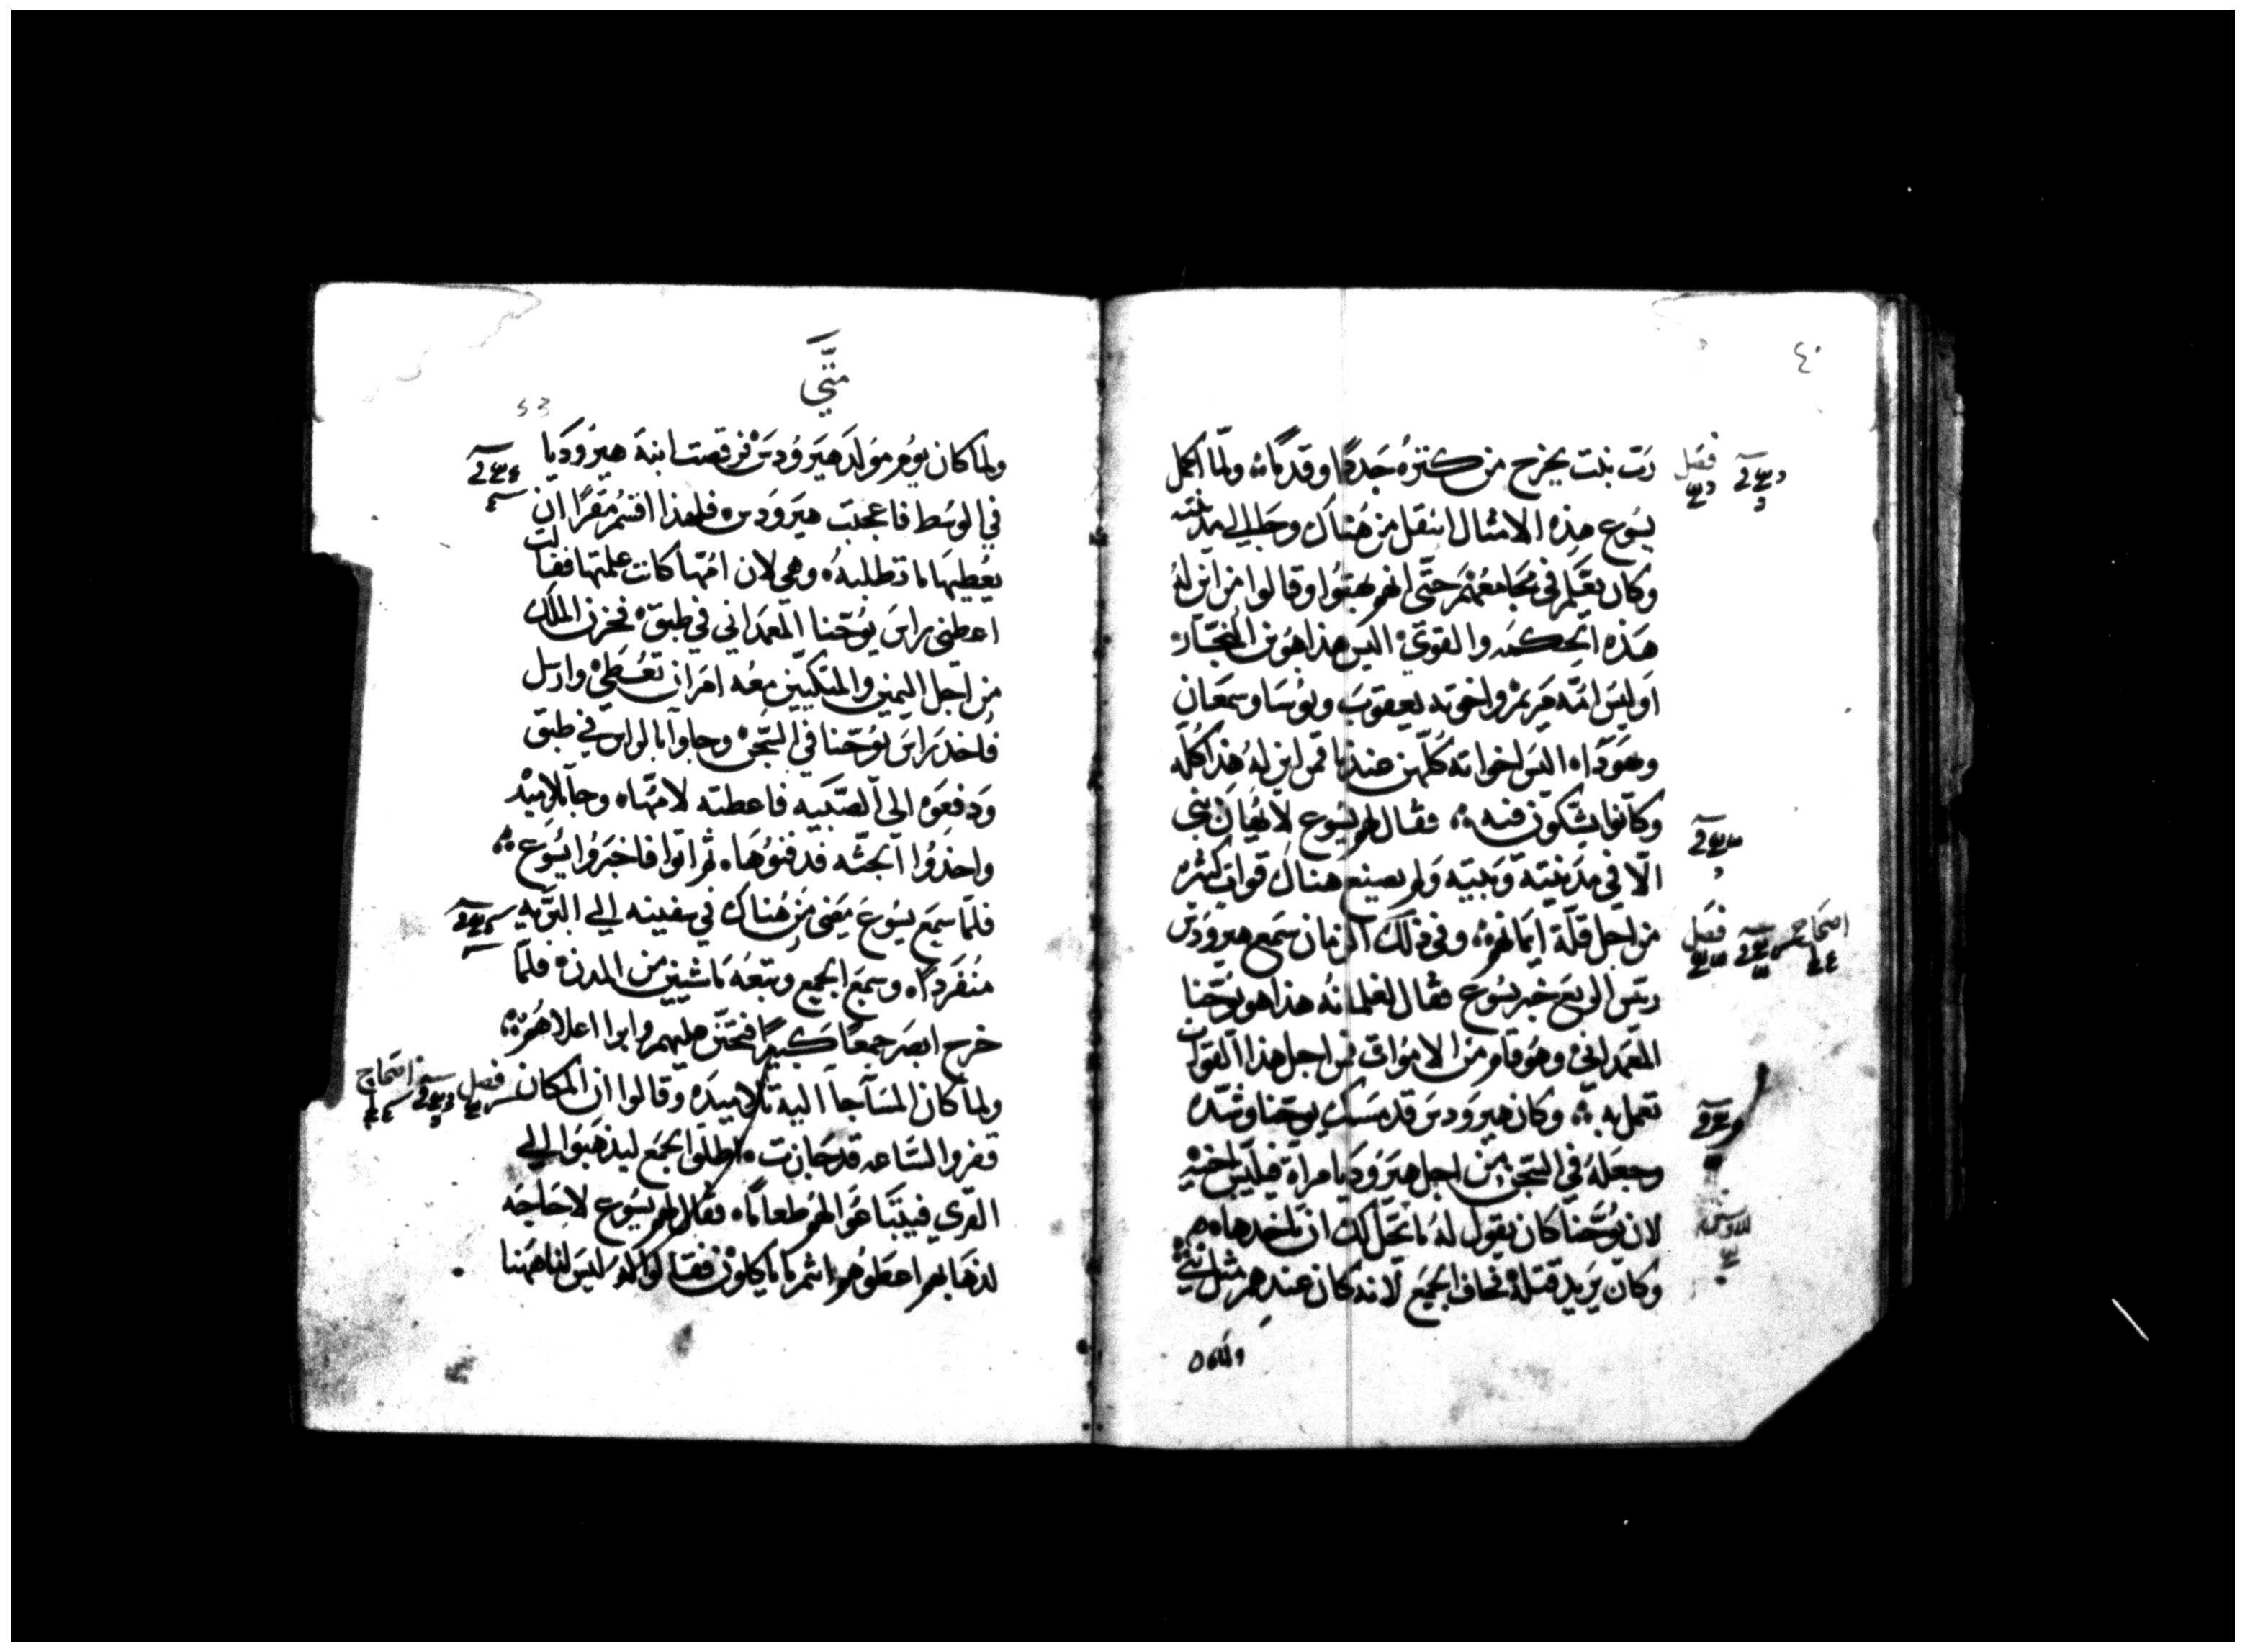 ٤٠
رب بيت يخرج من كنزه جددًا وقدمًا ولمّا اكمل
يسوع هذه الامثال انتقل من هناك وجا الي مدينته
وكان يعلّم في مجامعهم حتّى انهم بهتوا وقالوا من اين لهُ
هذه الحكمه والقوي اليس هذا هو بن النجّار
اوليس امّه مريم واخوته يعقوب ويوسا وسمعان
ويهودا اليس اخواته كلّهن عندنا فمن اين له هذا كلّه
وكانوا يشكّون فيه فقال لهم يسوع لا يُهان نبي
الّا في مدينته وبيته ولم يصنع هناك قوات كثيره
من اجل قلّة ايمانهم وفي ذلك الزمان سمع هيرودس
ريس الربع خبر يسوع فقال لغلمانه هذا هو يوحّنا
المعمداني وهو قام من الاموات فمن اجل هذا القوات
تعمل به وكان هيرودس قد مسك يوحّنا وشدّه
وجعلهُ في السّجن من اجل هيروديا مراة فيلبس اخيه
لان يوحّنا كان يقول لهُ ما يحّل لك ان تاخدها
وكان يريد قتله فخاف الجميع لانه كان عندهم مثل نبي
فصل
فصل
اصحاح
ولما
متّي
53
ولما كان يوم مولد هيرودس فرقصت ابنة هيروديا
في الوسط فاعجبت هيرودس فلهذا اقسم مقرًا ان
يعُطيها ما تطلبه وهي لان امّها كانت علمتها فقالت
اعطني راس يوحّنا المعمداني في طبق فحزن الملك
من اجل اليمين والمتكيين معُه امر ان تعُطي وارسل
فاخد راس يوحّنا في السّجن وجاوا بالراس في طبق
ودفعوه الى الصّبيه فاعطته لامّها وجا تلاميده
واخدُوا الجثّه فدفنوُها ثم اتوا فاخبروا يسوع
فلمّا سمع يسوع مضى من هناك في سفينه الي البرّيه
منفردًا وسمع الجميع وتبعهُ ماشيين من المدن فلمّا
خرج ابصر جمعًا كبيرًا فتحنّن عليهم وابرا اعلاهُم
ولما كان المسآ جآ اليه تلاميده وقالوا ان المكان
قفر والسّاعه قد جازت اطلق الجمع ليدهبوا الي
القري فيبتاعُوا لهُم طعامًا فقال لهم يسوع لا حاجه
لدهابهم اعطوُهم انتم ما ياكلون فقالوا له ليس لنا هاهنا
فصل
اصحاح